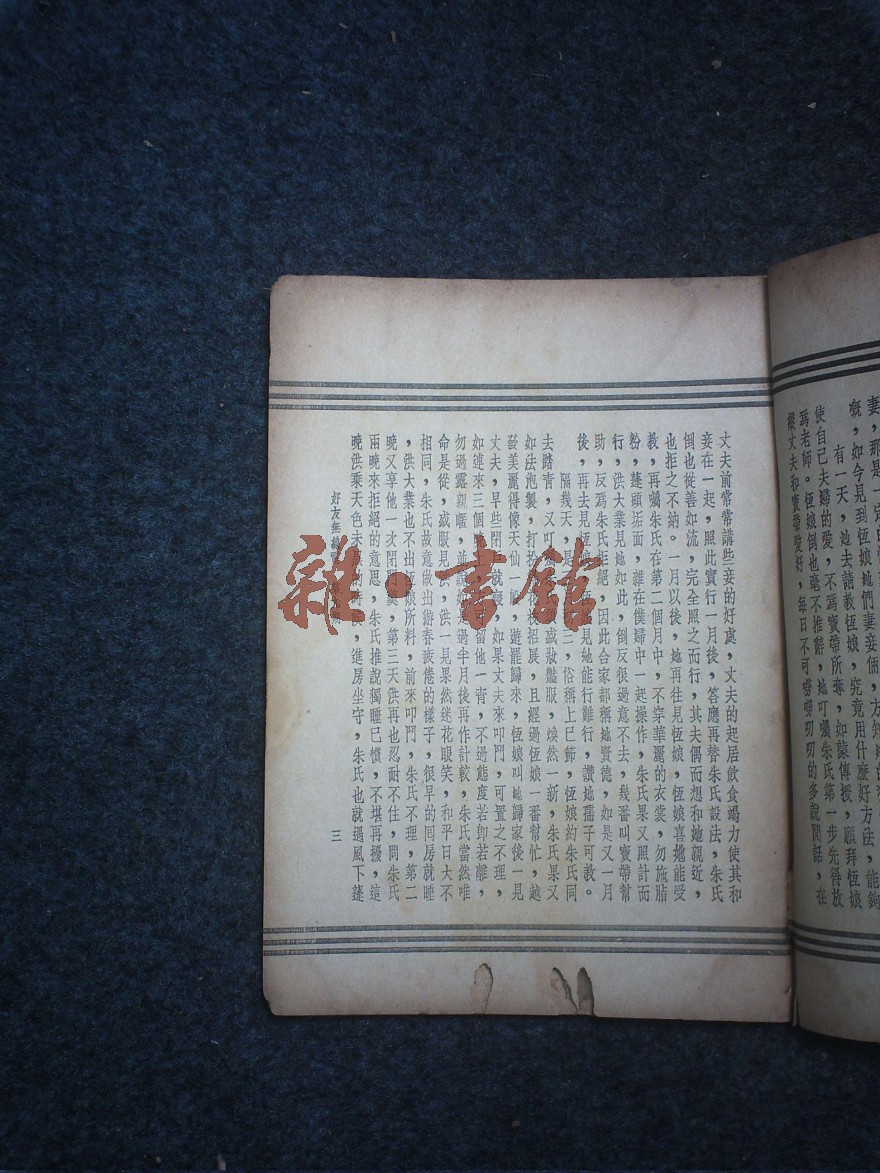 妻，那是一定
嘅，如今見到恆娘她們妻妾倆，方知
有一天，她去請教恆娘，究竟用什麼好方法，能夠
使自己夫婦的愛，不爲寶帶所奪，如蒙傳授，願拜恆娘
爲老師。恆娘倒也毫不推辭，她叮囑朱氏第一步先得放
縱丈夫和寶帶愛好，每日不可嘮嘮叨叨的多說閒話，在
丈夫前常常講些妾的好處，丈夫的起居飲食竭力使其和
妾在一起，照此實行一月後，答應再替朱氏設法，朱氏
倒也從善如流，完全照之而行，其夫偶而想和她親近，
也拒之不納。一月以後，她再往見恆娘，恆娘喜她能受
教，再囑朱氏在第二個月中，不穿華麗的衣裳，勿施脂
粉，蓬頭垢面，雜在僕婦中一起操作，朱氏果又照計而
行，洪大業見她如此，倒反很過意不去，幾番叫寶帶幫
助，反爲朱氏拒絕，因此合家都稱她賢德，如是又一月
後，再去見恆娘，見她能行難行，讚她孺子可教。
隔幾天，是三，俗稱上巳節，恆娘約朱氏同
去踏青，又叮盛妝豔服，煥然一新，朱氏果又
如法泡製，打扮花枝招展，且經過恆娘一番幫忙，越
發美麗得像天仙一般，遊罷歸來，恆娘叫她歸家後一見
丈夫，早些閉門就寢，如果丈夫來叩門，可置之不理，
如連來三個留他一宵，不過態度若卽若離，
勿過露親暱，並說如是過半月後再作計較，朱氏當然唯
命是從，盛服見夫，洪一見果然迷花眼笑，和平日大不
相同，朱氏故意做出游春疲倦的樣子，很早的囘房就睡
，洪大業也不出恆娘所料，前來叩門，朱氏不理，第二
晚又享他一次閉門羹，第三天洪再也忍耐不住，問朱氏
兩晚來拒絕的意思，朱氏推說獨睡已慣，不堪再擾，這
晚洪乘天色未，進房坐守，朱氏也就過風下蓬
好友無
三
雜·書館